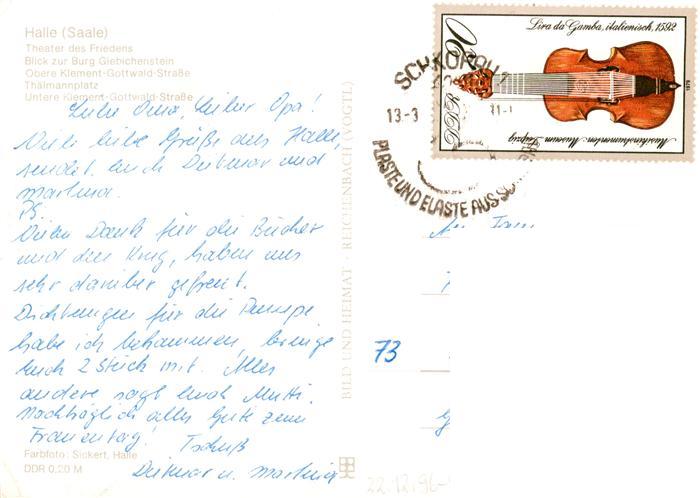 Halle (Saale)
Theater des Friedens
Blick zur Burg Giebichenstein
Obere Klement-Gottwald-Straße
Thälmannplatz
Untere Klement-Gottwald-Straße
Liebe Oma, Lieber Opa!
Viele liebe Grüße aus Halle,
sendet Euch Dietmar und
Martina.
PS.
Vielen Dank für die Bücher
und den Krug, haben uns
sehr darüber gefreut.
Dichtungen für die Pumpe
habe ich bekommen, bringe
Euch 2 Stück mit. Alles
andere sagt Euch Mutti.
Nachträglich alles Gute zum
Frauentag!
Tschüß
Dietmar u. Martina
Farbfoto: Sickert, Halle
DDR 0,20 M
BILD UND HEIMAT · REICHENBACH (VOGTL)
Lira da Gamba, italienisch, 1592
20
DDR
1979
Musikinstrumenten-Museum Leipzig
SCHKOPAU
13.-3
PLASTE UND ELASTE AUS
73
22.12.96